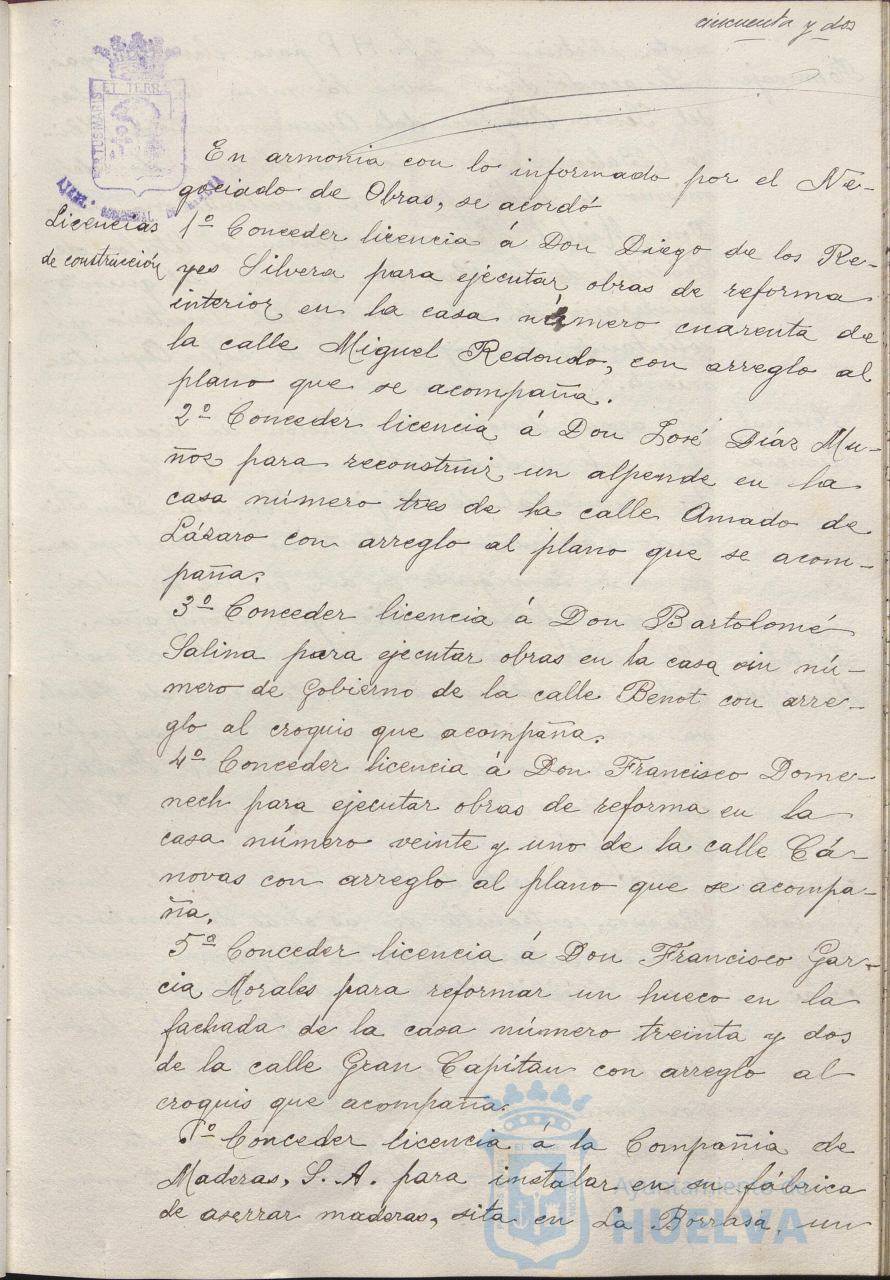 cincuenta y dos
ET TERRÆ
PORTUS MARIS
Licencias
de construcción
En armonia con lo informado por el Ne-
gociado de Obras, se acordó
1º Conceder licencia á Don Diego de los Re-
yes Silvera para ejecutar obras de reforma
interior en la casa número cuarenta de
la calle Miguel Redondo, con arreglo al
plano que se acompaña.
2º Conceder licencia á Don José Díaz Mu-
ñoz para reconstruir un alpende en la
casa número tres de la calle Amado de
Lázaro con arreglo al plano que se acom-
paña.
3º Conceder licencia á Don Bartolomé
Salina para ejecutar obras en la casa sin nú-
mero de Gobierno de la calle Benot con arre-
glo al croquis que acompaña.
4º Conceder licencia á Don Francisco Dome-
nech para ejecutar obras de reforma en la
casa número veinte y uno de la calle Cá-
novas con arreglo al plano que se acompa-
ña.
5º Conceder licencia á Don Francisco Gar-
cia Morales para reformar un hueco en la
fachada de la casa número treinta y dos
de la calle Gran Capitan con arreglo al
croquis que acompaña.
º Conceder licencia á la Compañia de
Maderas, S. A. para instalar en su fábrica
de aserrar maderas, sita en La Borrasa, un
Ayuntamiento de
HUELVA